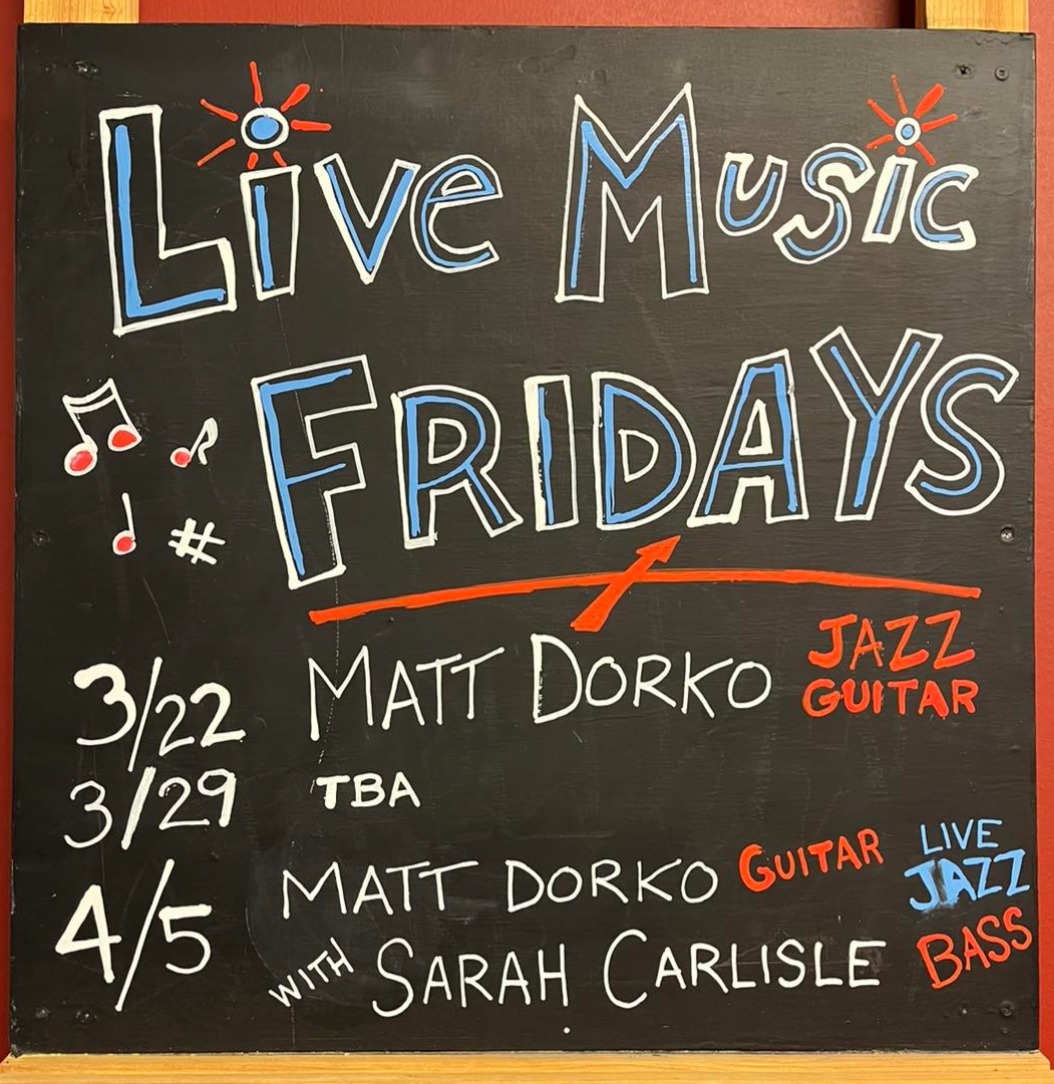 Live Music
FRIDAYS
#
3/22 MATT DORKO JAZZ GUITAR
3/29 TBA
4/5 MATT DORKO GUITAR LIVE JAZZ
WITH SARAH CARLISLE BASS